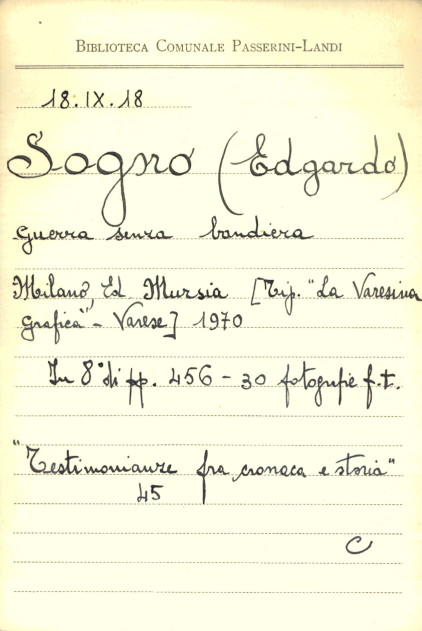 BIBLIOTECA COMUNALE PASSERINI-LANDI
18.IX.18
Sogno (Edgardo)
Guerra senza bandiera
Milano, Ed Mursia [Tip. "La Varesina
Grafica" - Varese] 1970
In 8° di pp. 456 - 30 fotografie f.t.
"Testimonianze fra cronaca e storia"
45
C